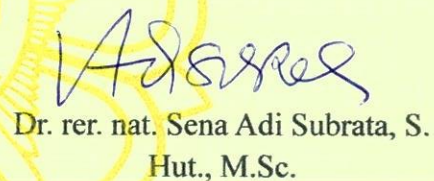 Dr. rer. nat. Sena Adi Subrata, S.
Hut., M.Sc.